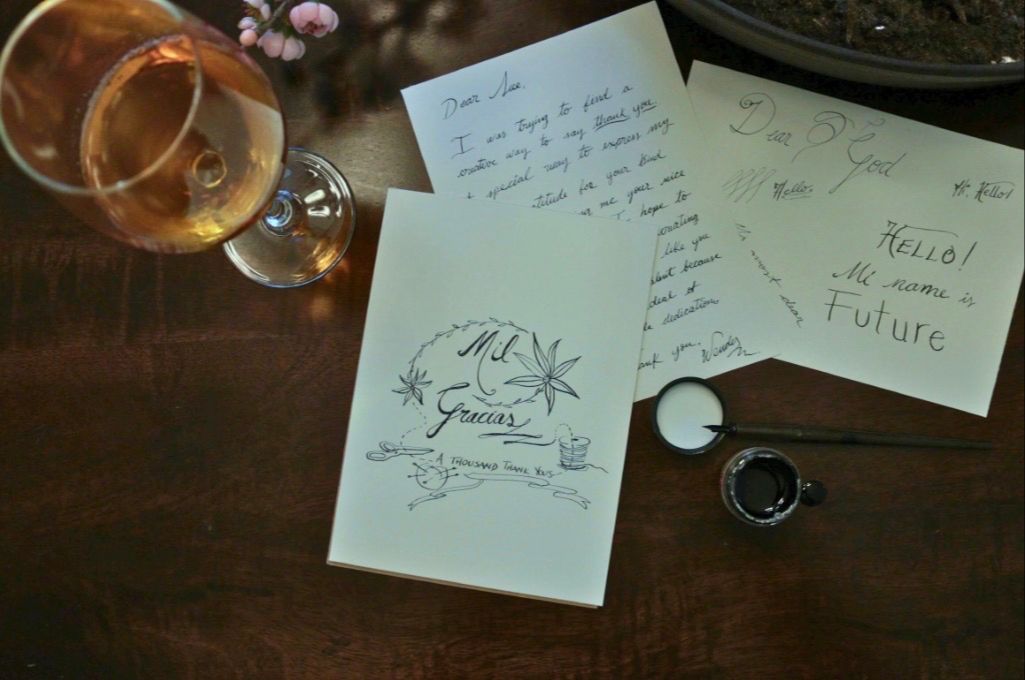 Dear Sue,
I was trying to find a
creative way to say thank you.
special way to express my
titude for your kind
me your nice
I hope to
like you
because
deal of
dedication.
ank you. Wendy
Dear God
Hello.
Hi. Hello!
HELLO!
Mi name is
Future
dear
Mil
Gracias
A THOUSAND THANK YOUS